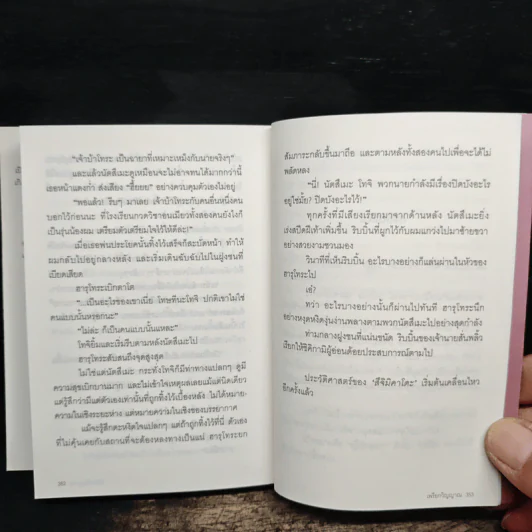 "เจ้าบ้าโทระ เป็นฉายาที่เหมาะเหม็งกับนายจริงๆ"
และแล้วนัตสึเมะดูเหมือนจะไม่อาจทนได้มากกว่านี้
เธอหน้าแดงก่ำ ส่งเสียง "ฮี้ยยย" อย่างควบคุมตัวเองไม่อยู่
"พอแล้ว! รีบๆ มาเลย เจ้าบ้าโทระกับคนอื่นหนึ่งคน
บอกไว้ก่อนนะ ที่โรงเรียนกวดวิชาอนเมียวทั้งสองคนยังไงก็
เป็นรุ่นน้องผม เตรียมตัวเตรียมใจไว้ให้ดีล่ะ!"
เมื่อเธอพ่นประโยคนั้นทิ้งไว้เสร็จก็สะบัดหน้า ทำให้
ผมกลับไปอยู่กลางหลัง และเริ่มเดินฉับฉับไปในฝูงชนที่
เบียดเสียด
ฮารุโทระเบิกตาโต
"...เป็นอะไรของเขาเนี่ย โทษทีนะโทจิ ปกติเขาไม่ใช่
คนแบบนั้นหรอกนะ"
"ไม่ล่ะ ก็เป็นคนแบบนั้นแหละ"
โทจิยิ้มและเริ่มรีบตามหลังนัตสึเมะไป
ฮารุโทระสับสนถึงจุดสูงสุด
ไม่ใช่แค่นัตสึเมะ กระทั่งโทจิก็มีท่าทางแปลกๆ ดูมี
ความสุขเบิกบานมาก และไม่เข้าใจเหตุผลเลยแม้แต่นิดเดียว
แค่รู้สึกว่ามีแต่ตัวเองเท่านั้นที่ถูกทิ้งไว้เบื้องหลัง ไม่ได้หมาย-
ความในเชิงระยะห่าง แต่หมายความในเชิงของบรรยากาศ
แม้จะรู้สึกตะหงิดใจแปลกๆ แต่ถ้าถูกทิ้งไว้ที่นี่ ตัวเอง
ที่ไม่คุ้นเคยกับสถานที่จะต้องหลงทางเป็นแน่ ฮารุโทระยก
352
สัมภาระกลับขึ้นมาถือ และตามหลังทั้งสองคนไปเพื่อจะได้ไม่
พลัดหลง
"นี่! นัตสึเมะ โทจิ พวกนายกำลังมีเรื่องปิดบังอะไร
อยู่ใช่มั้ย? ปิดบังอะไรไว้!"
ทุกครั้งที่มีเสียงเรียกมาจากด้านหลัง นัตสึเมะยิ่ง
เร่งสปีดฝีเท้าเพิ่มขึ้น ริบบิ้นที่ผูกไว้กับผมแกว่งไปมาซ้ายขวา
อย่างสวยงามชวนมอง
วินาทีที่เห็นริบบิ้น อะไรบางอย่างก็แล่นผ่านในหัวของ
ฮารุโทระไป
เอ๋?
ทว่า อะไรบางอย่างนั้นก็ผ่านไปทันที ฮารุโทระนึก
อย่างหงุดหงิดงุ่นง่านพลางตามพวกนัตสึเมะไปอย่างสุดกำลัง
ท่ามกลางฝูงชนที่แน่นขนัด ริบบิ้นของเจ้านายสั่นพลิ้ว
เรียกให้ชิคิกามิผู้อ่อนด้อยประสบการณ์ตามไป
ประวัติศาสตร์ของ 'สึจิมิคาโดะ' เริ่มต้นเคลื่อนไหว
อีกครั้งแล้ว
353